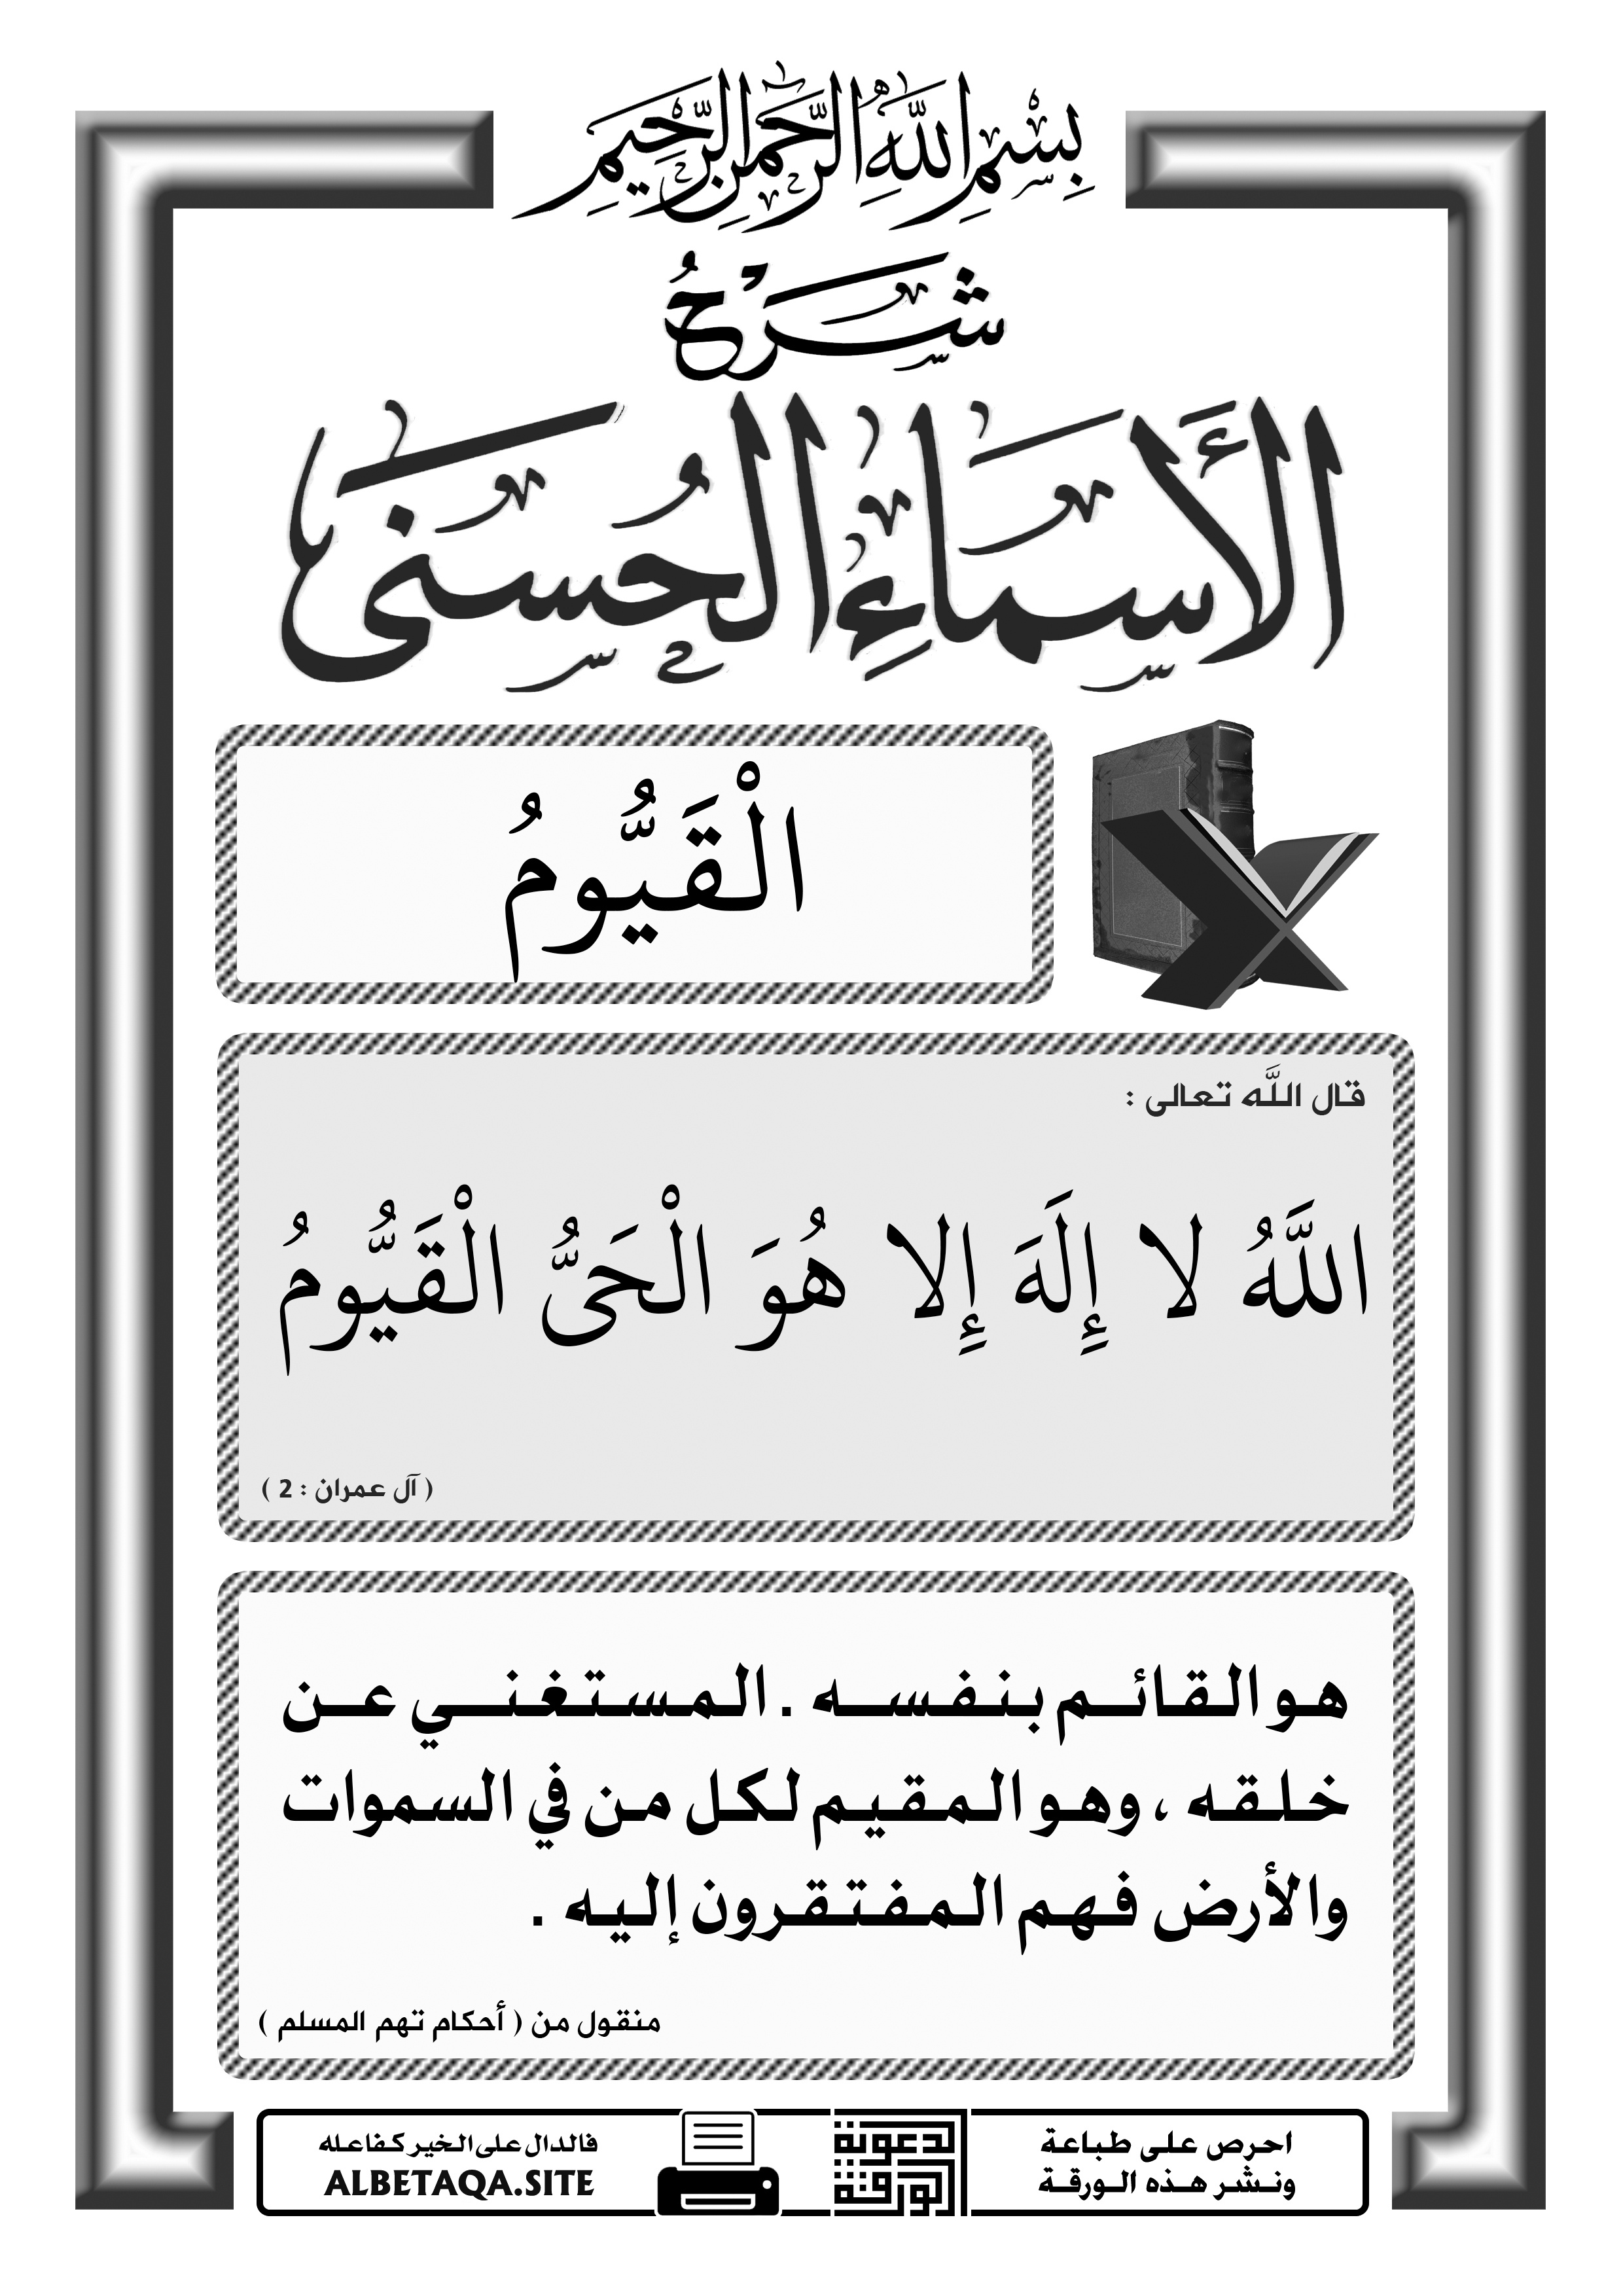 بِسْمِ اللَّهِ الرَّحْمَنِ الرَّحِيمِ
شَرْحُ
الأَسْمَاءِ الْحُسْنَى
الْقَيُّومُ
قال اللَّه تعالى :
اللَّهُ لا إِلَهَ إِلا هُوَ الْحَىُّ الْقَيُّومُ
( آل عمران : 2 )
هو القائم بنفسه . المستغني عن
خلقه ، وهو المقيم لكل من في السموات
والأرض فهم المفتقرون إليه .
منقول من ( أحكام تهم المسلم )
احرص على طباعة
ونشر هذه الورقة
الورقة
الدعوية
فالدال على الخير كفاعله
ALBETAQA.SITE